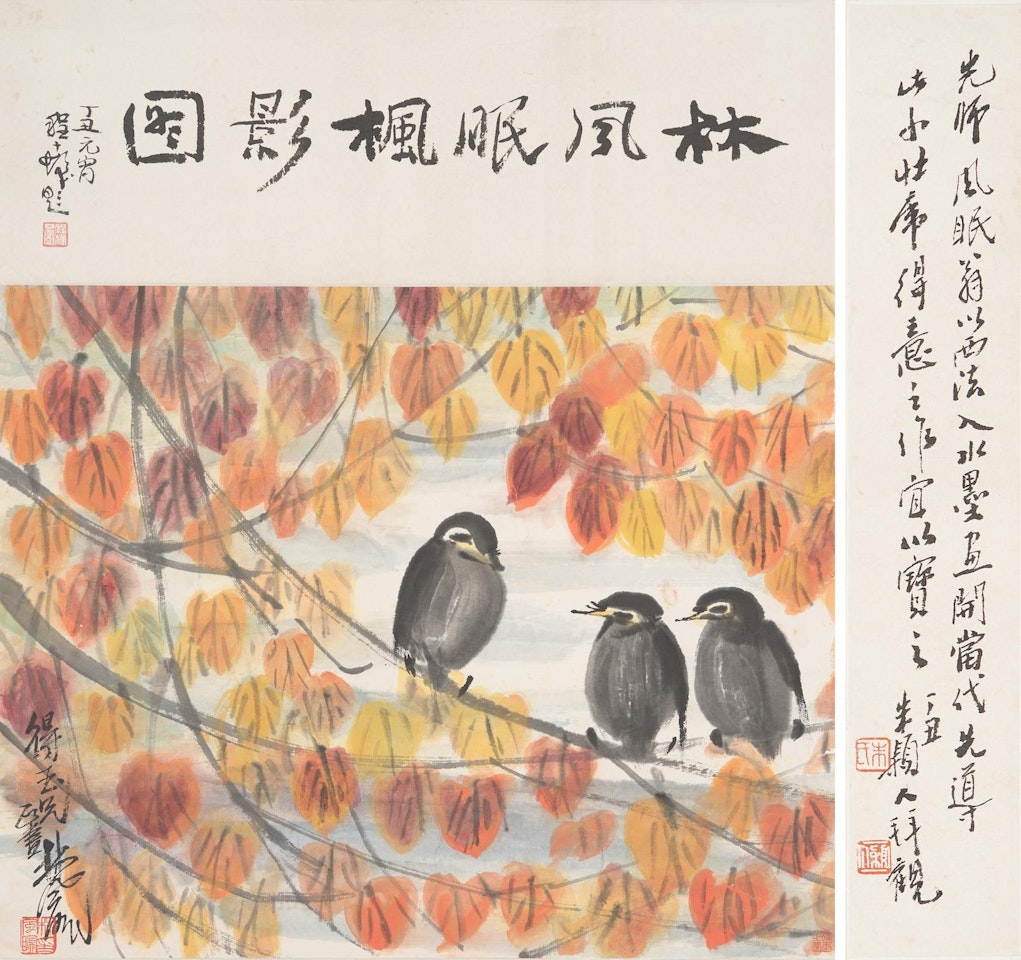 林風眠楓影圖
丁丑元宵
程十髮題
先師風眠翁以西法入水墨畫開當代先導
此壯得意之作宜以寶之 丁丑 朱穎人拜觀
得玉兄
林風眠
朱氏
穎人